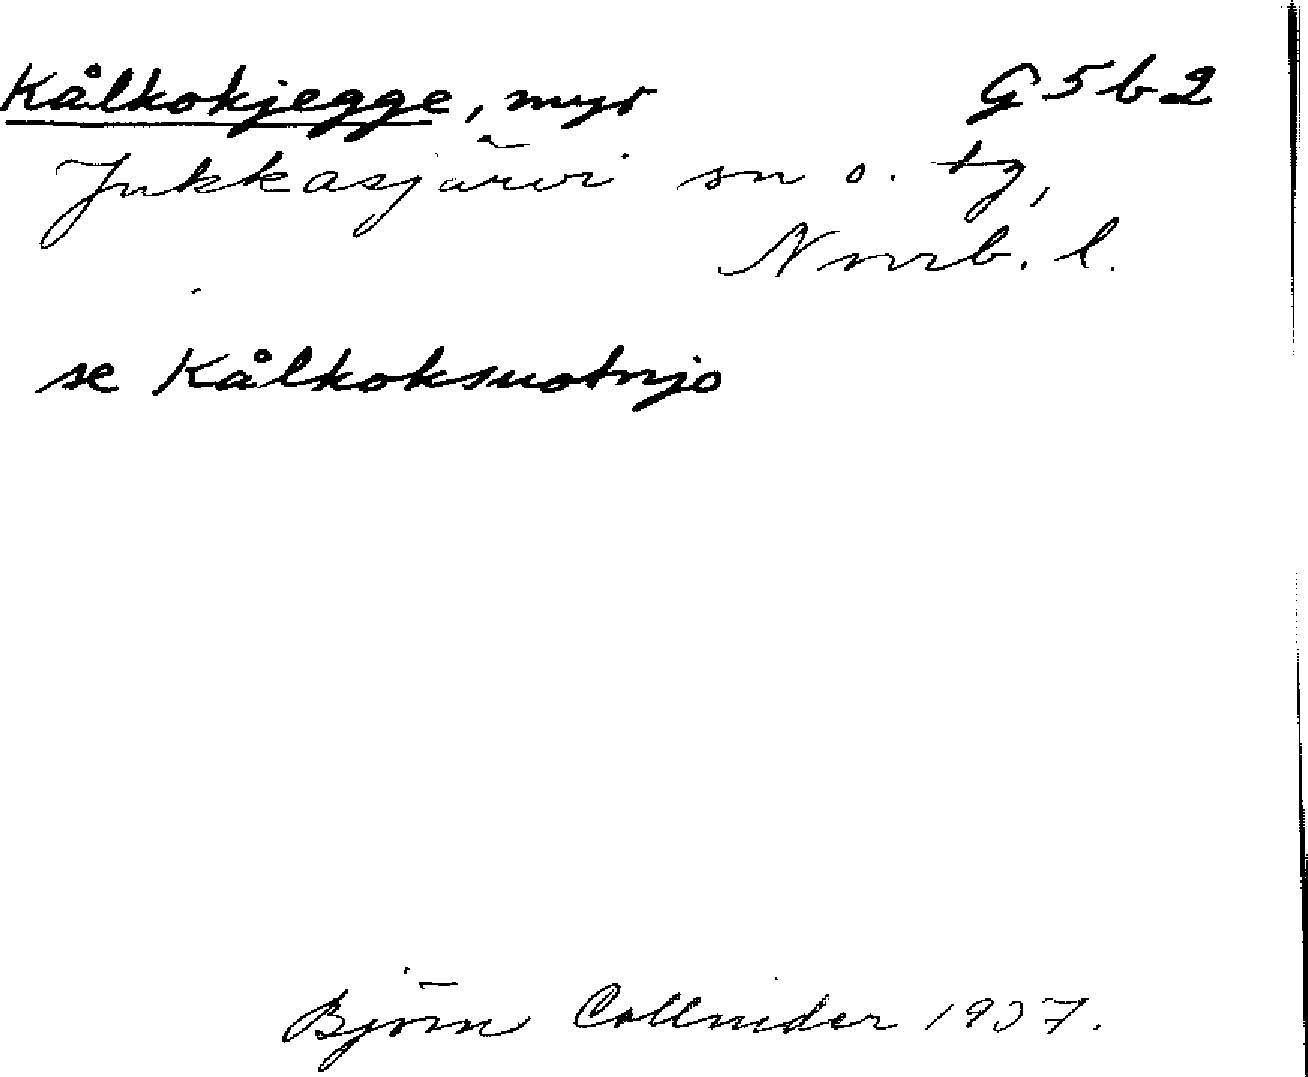 Kålkokjegge, myr G5b2
Jukkasjärvi sn o. tg,
Norrb. l.
se Kålkoksuotnjo
Björn Collinder 1937.